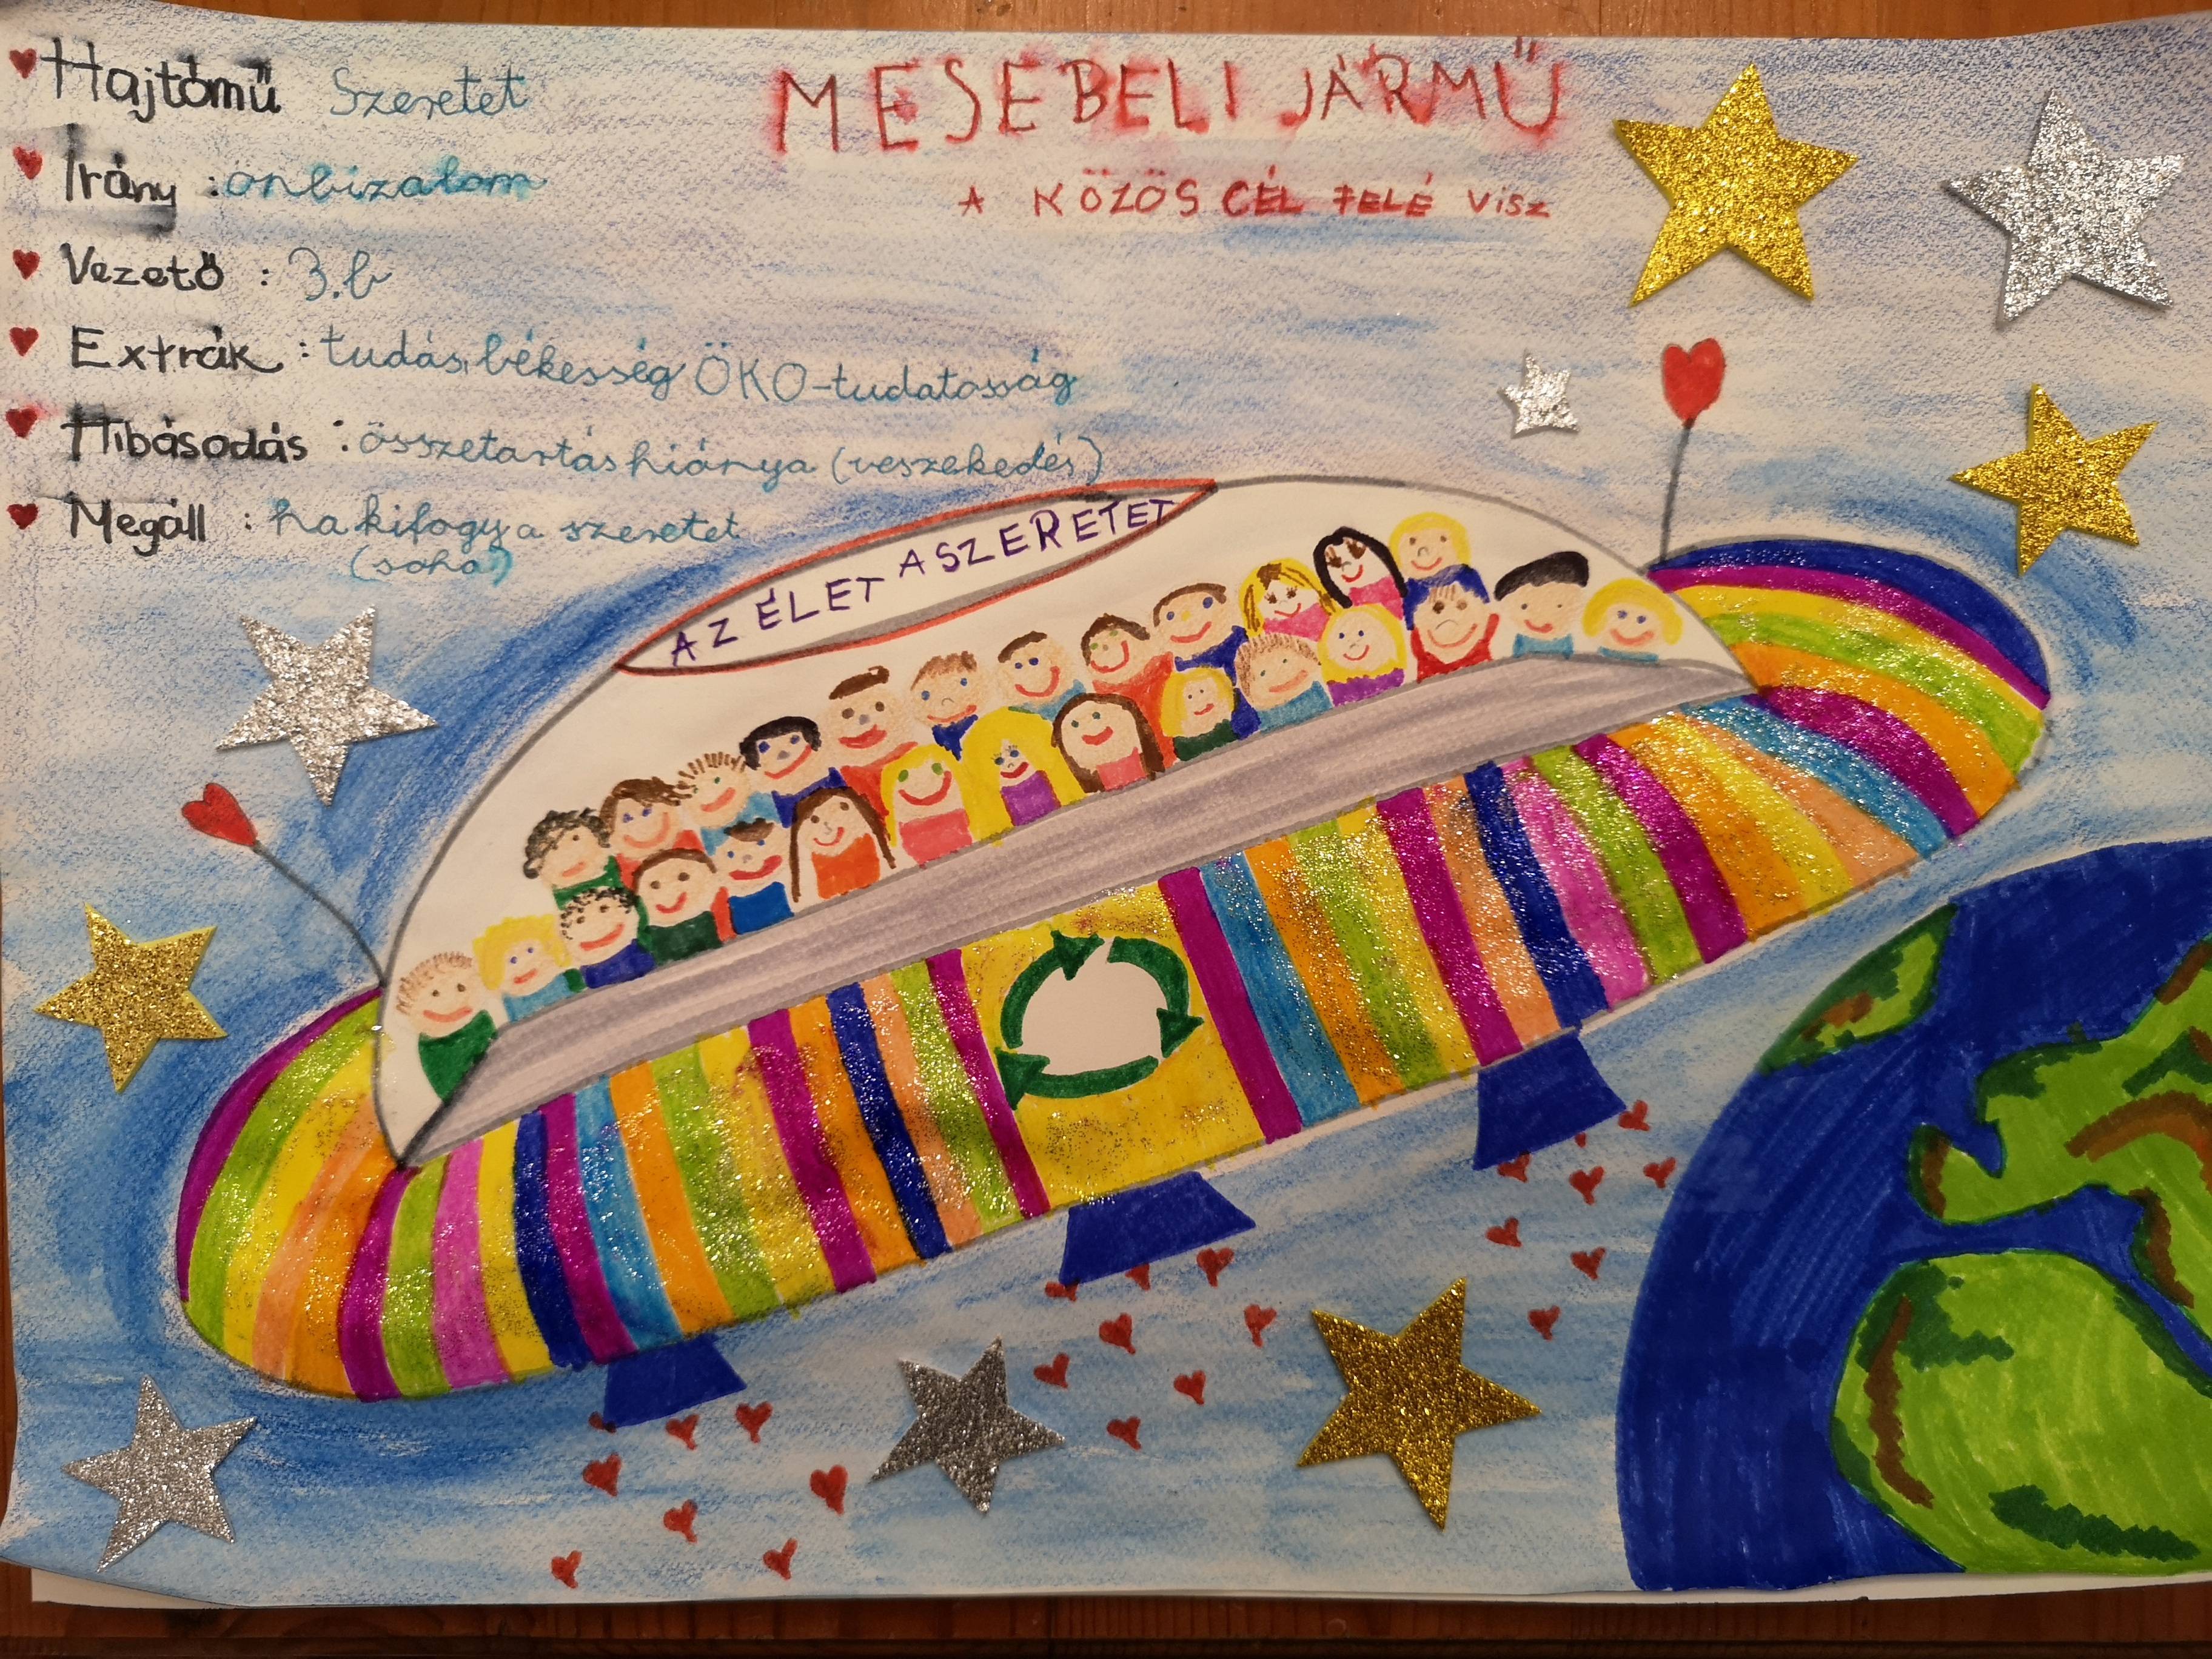 Hajtómű Szeretet
MESEBELI JÁRMŰ
A KÖZÖS CÉL FELÉ VISZ
Irány : önbizalom
Vezető : 3.b
Extrák : tudás, békesség ÖKO-tudatosság
Hibásodás : összetartás hiánya (veszekedés)
Megáll : ha kifogy a szeretet
(soha)
AZ ÉLET A SZERETET